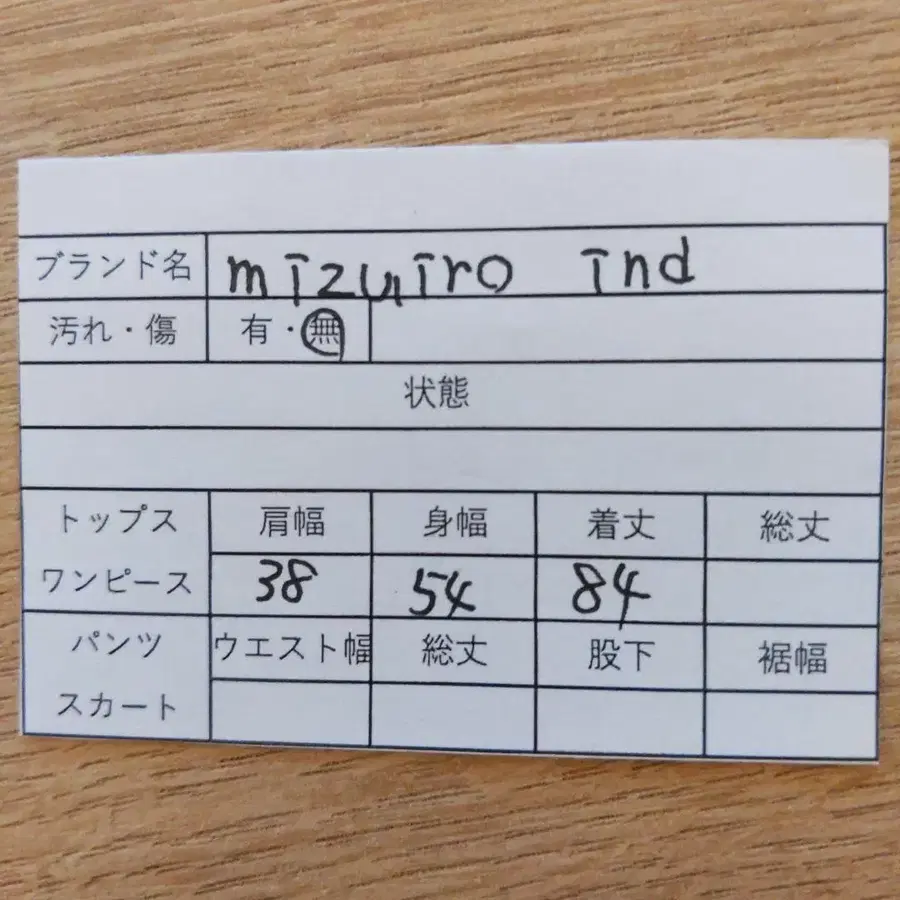 ブランド名 mizuiro ind
汚れ・傷 有・無
状態
トップス 肩幅 身幅 着丈 総丈
ワンピース 38 54 84
パンツ ウエスト幅 総丈 股下 裾幅
スカート